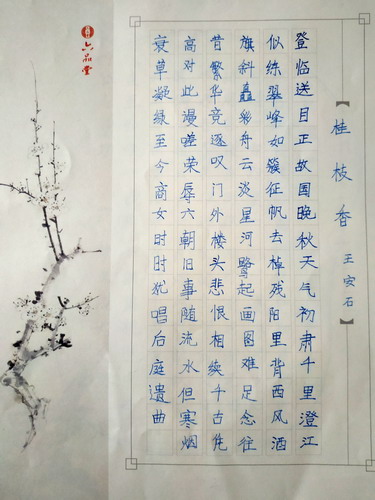 【桂枝香 王安石】
登临送目正故国晚秋天气初肃千里澄江
似练翠峰如簇征帆去棹残阳里背西风酒
旗斜矗彩舟云淡星河鹭起画图难足念往
昔繁华竞逐叹门外楼头悲恨相续千古凭
高对此漫嗟荣辱六朝旧事随流水但寒烟
衰草凝缘至今商女时时犹唱后庭遗曲
六品堂